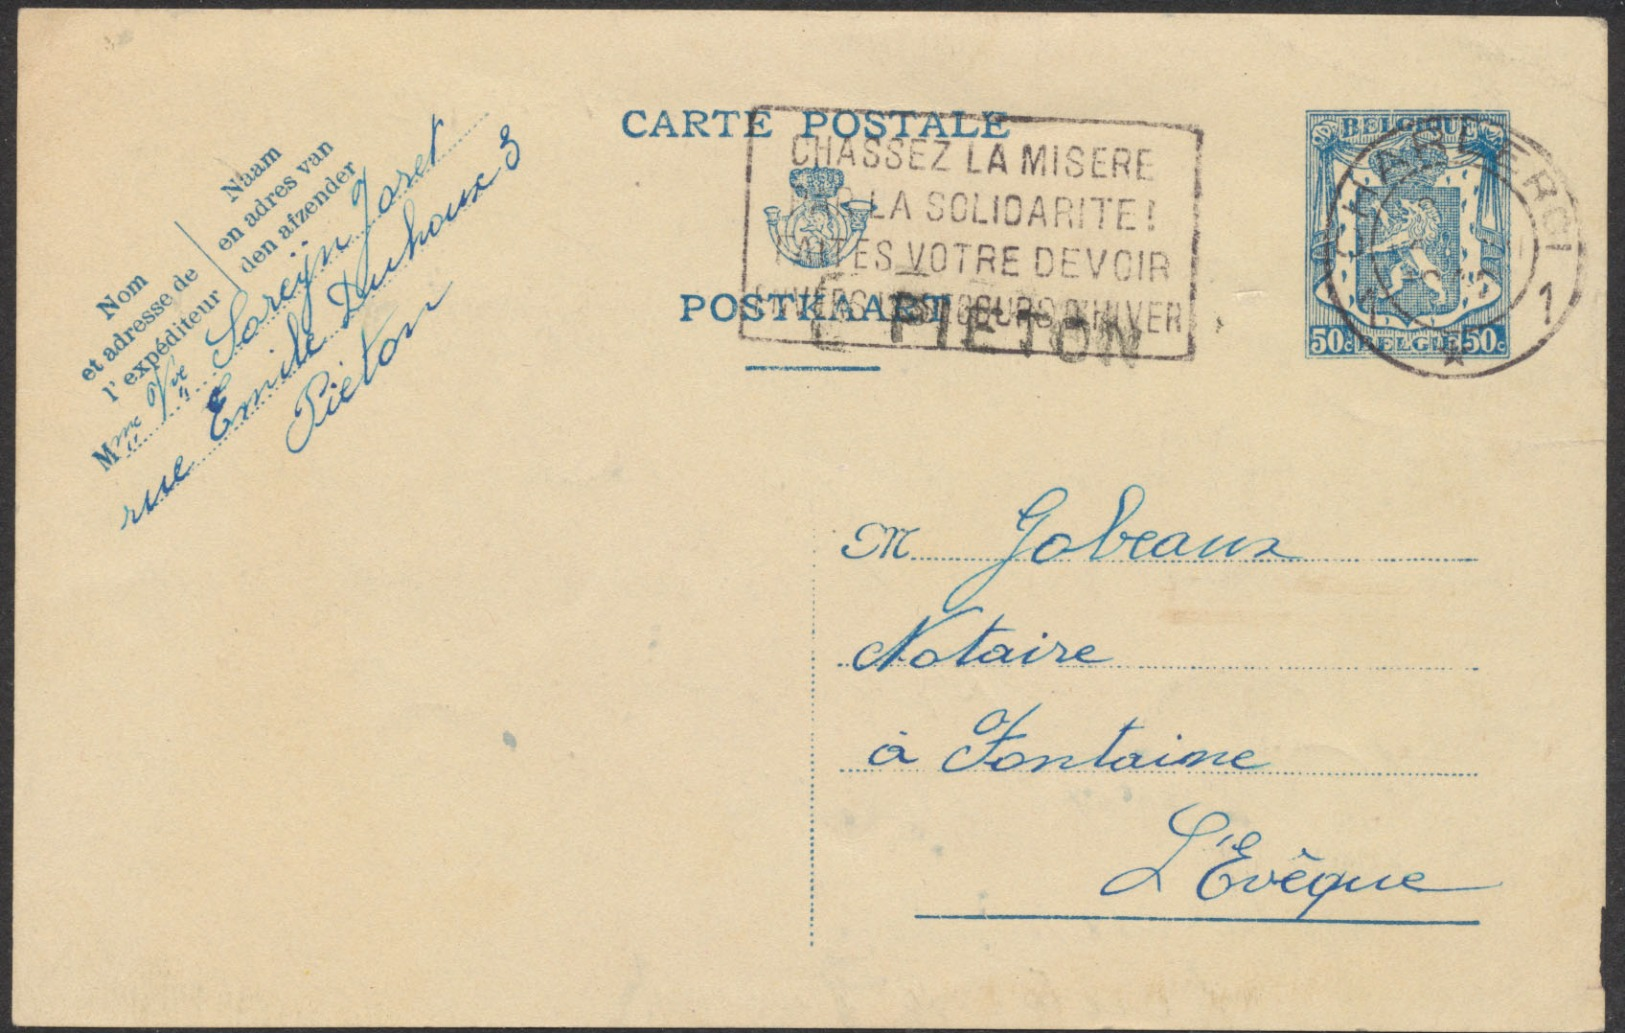 CARTE POSTALE
POSTKAART
CHASSEZ LA MISERE
PAR LA SOLIDARITE!
FAITES VOTRE DEVOIR
ENVERS LE SECOURS D'HIVER
PIETON
BELGIQUE
50c BELGIE 50c
CHARLEROI
1 1
Naam
en adres van
den afzender
Nom
et adresse de
l'expéditeur
Mme Vve Joret
rue Emile Duhoux 3
Piéton
M Gobeaux
Notaire
à Fontaine
L'Evêque